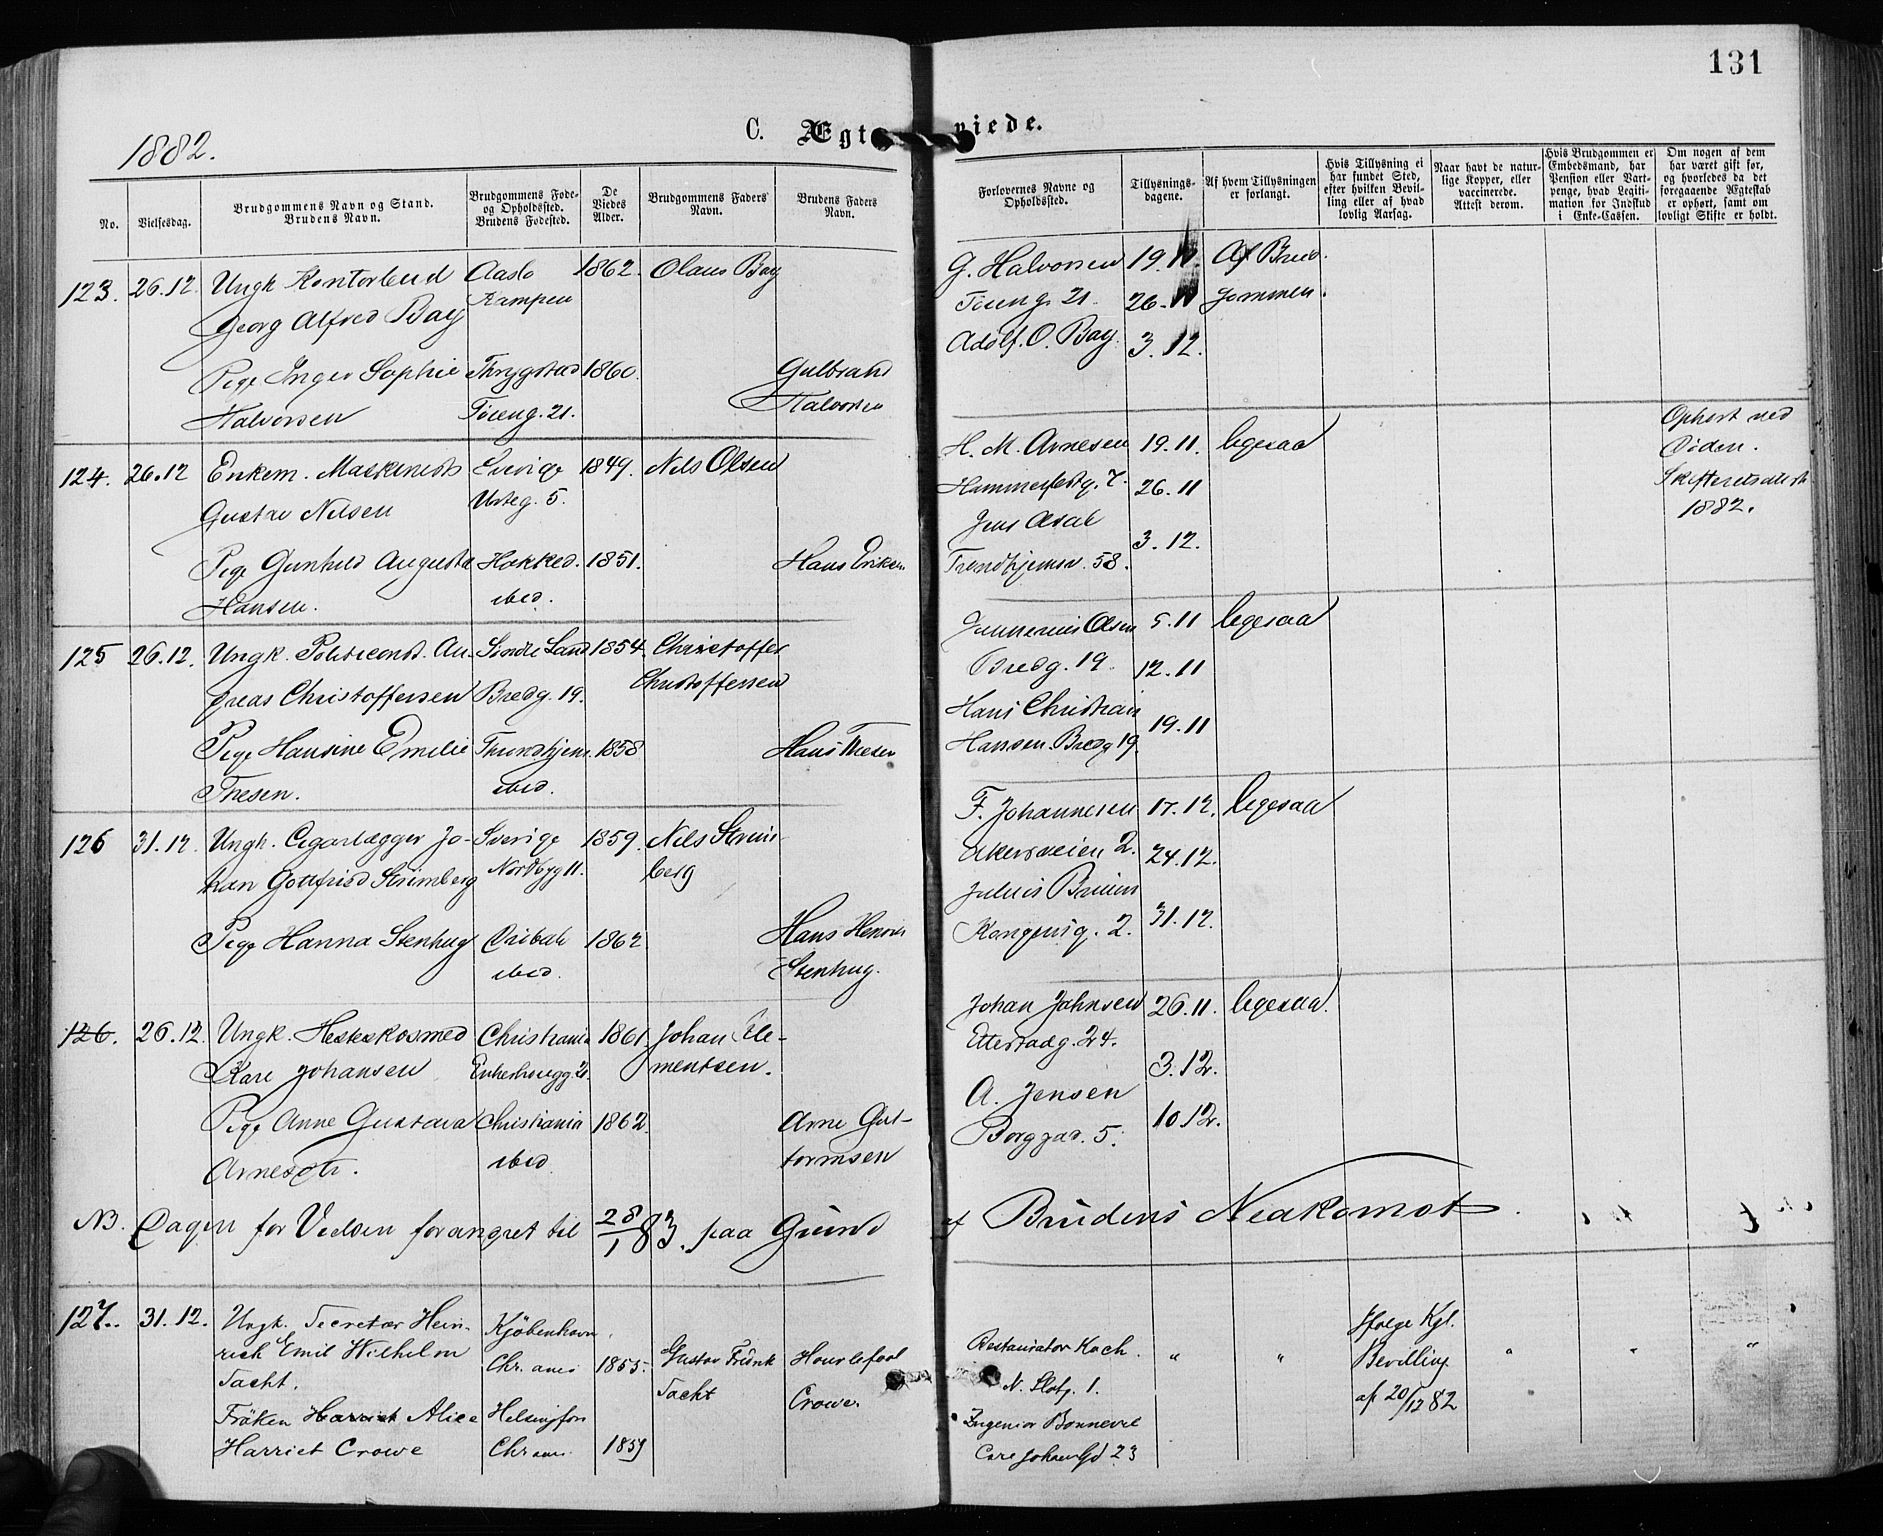 131
1882.
C. Ægteviede.
No.
Vielsesdag.
Brudgommens Navn og Stand.
Brudens Navn.
Brudgommens Føde-
og Opholdssted.
Brudens Fødested.
De
Viedes
Alder.
Brudgommens Faders
Navn.
Brudens Faders
Navn.
Forlovernes Navne og
Opholdssted.
Tillysnings-
dagene.
Af hvem Tillysningen
er forlangt.
Hvis Tillysning ei
har fundet Sted,
efter hvilken Bevil-
ling eller af hvad
lovlig Aarsag.
Naar havt de natur-
lige Kopper, eller
vaccinerede.
Attest derom.
Hvis Brudgommen er
Embedsmand, har
Pension eller Vart-
penge, hvad Legiti-
mation for Indskud
i Enke-Cassen.
Om nogen af dem
har været gift før,
og hvorledes da det
foregaaende Ægteskab
er ophørt, samt om
lovligt Skifte er holdt.
123. 26.12. Ungk. Kontorbud Aaslo 1862. Olaus Bay
Georg Alfred Bay Kampen
Pige Inger Sophie Thrygstad 1860. Gulbrand
Halvorsen Tøieng. 21. Halvorsen
G. Halvorsen 19.11. Af Brud-
Tøieng. 21. 26.11 gommen.
Adolf. O. Bay. 3.12.
124. 26.12 Enkem. Maskinist Sverige 1849. Nils Olsen
Gustav Nilsen Urteg. 5.
Pige Gunhild Augusta Hakked. 1851. Hans Eriksen
Hansen. ibid.
H. M. Arnesen 19.11. ligesaa Ophørt ved
Døden.
Hammerfestg. 7. 26.11 Skifteretsattest
1882.
Jens
Trondhjemsv. 58. 3.12.
125 26.12. Ungk. Politiconst. An- Søndre Land 1854. Christoffer
dreas Christoffersen Bredg. 19. Christoffersen
Pige Hansine Emelie Throndhjem. 1858 Hans Thesen
Thesen. ibid.
Gunnerius Olsen 5.11 ligesaa
Bredg. 19. 12.11
Hans Christian
Hansen. Bredg 19. 19.11
126 31.12. Ungk. Cigarlægger Jo- Sverige 1859. Nils Strøm-
han Gottfried Strömberg Nordbyg 11. berg
Pige Hanna Stenhug ibid. 1862 Hans Henrik
Stenhug.
F. Johannesen 17.12. ligesaa
Akersveien 2. 24.12.
Julius Bruun
Kongensg. 2. 31.12.
126. 26.12. Ungk. Hesteskosmed Christiania 1861. Johan Cle-
Karl Johansen Enkehougg. 2. mentsen.
Pige Anne Gustava Christiania 1862. Arne Gut-
Arnesdtr. ibid tormsen
Johan Johnsen 26.11. ligesaa.
Etterstadg. 24.
3.12.
A. Jensen
Borggad. 5. 10.12.
NB. Dagen for Vielsen forandret til 28/1 83. paa Grund af Brudens Nedkomst.
127. 31.12. Ungk. Secretær Hein- Kjöbenhavn
rich Emil Wilhelm Chr.ania 1855. Gustav Frank
Tacht. Tacht
Houslefaal
Crowe.
Fröken Harriet Alice Helsingfors
Harriet Crowe Chr.ania 1859
Restauratør Koch. " " Ifølge Kgl. " " "
N. Slotg. 1. Bevilling
Ingeniør Bonnevie af 20/12 82
Carl Johans Gd 23